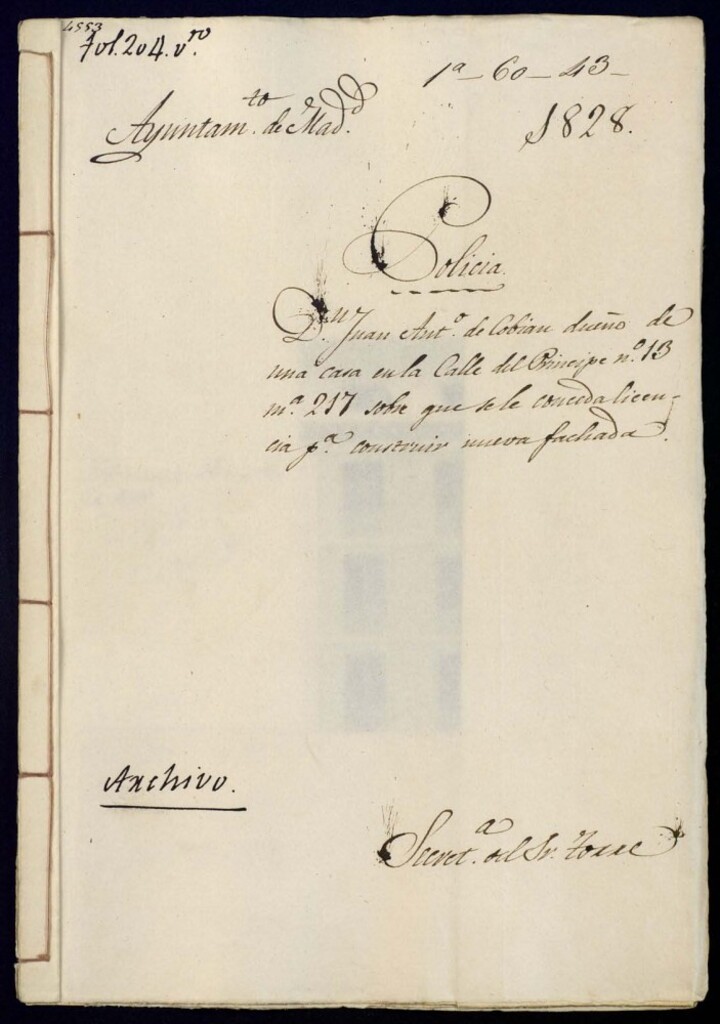 4553
Fol. 204. v.to
1ª - 60 - 43 -
Ayuntam.to de Mad.d
1828.
Policia.
D.n Juan Ant.o de Cobian dueño de
una casa en la Calle del Principe n.o 13
m.a 217 sobre que se le conceda licen-
cia p.a construir nueva fachada.
Archivo.
Secret.a del Sr. Torre